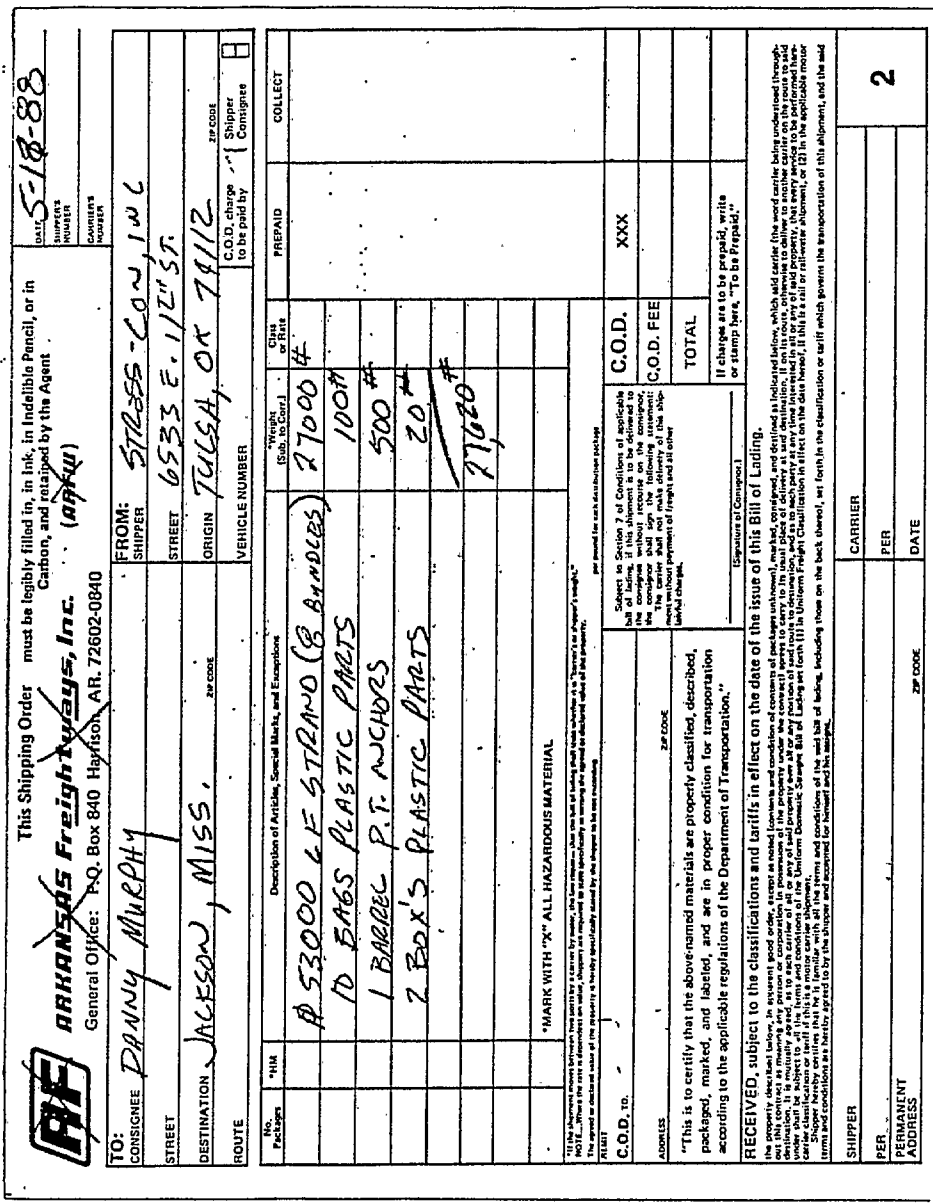 This Shipping Order must be legibly filled in, in Ink, in Indelible Pencil, or in
Carbon, and retained by the Agent
DATE 5-18-88
SHIPPER'S NUMBER
CARRIER'S NUMBER
AF
ARKANSAS Freightways, Inc. (ARFW)
General Office: P.O. Box 840 Harrison, AR. 72602-0840
TO:
CONSIGNEE DANNY MURPHY
STREET
DESTINATION JACKSON, MISS. ZIP CODE
ROUTE
FROM:
SHIPPER STRESS-CON, INC
STREET 6533 E. 112th ST.
ORIGIN TULSA, OK 74112 ZIP CODE
VEHICLE NUMBER
C.O.D. charge to be paid by { Shipper Consignee
No. Packages *HM Description of Articles, Special Marks, and Exceptions *Weight (Sub. to Corr.) Class or Rate PREPAID COLLECT
53000 LF STRAND (8 BUNDLES) 27000 #
10 BAGS PLASTIC PARTS 100#
1 BARREL P.T. ANCHORS 500#
2 BOX'S PLASTIC PARTS 20#
27,620#
*MARK WITH "X" ALL HAZARDOUS MATERIAL
*If the shipment moves between two ports by a carrier by water, the law requires that the bill of lading shall state whether it is "carrier's or shipper's weight."
NOTE—Where the rate is dependent on value, shippers are required to state specifically in writing the agreed or declared value of the property.
The agreed or declared value of the property is hereby specifically stated by the shipper to be not exceeding
per pound for each distribution package
REMIT
C.O.D. TO.
ADDRESS ZIP CODE
Subject to Section 7 of Conditions of applicable
bill of lading, if this shipment is to be delivered to
the consignee without recourse on the consignor,
the consignor shall sign the following statement:
The carrier shall not make delivery of this ship-
ment without payment of freight and all other
lawful charges.
(Signature of Consignor.)
C.O.D. XXX
C.O.D. FEE
TOTAL
If charges are to be prepaid, write
or stamp here, "To be Prepaid."
"This is to certify that the above-named materials are properly classified, described,
packaged, marked, and labeled, and are in proper condition for transportation
according to the applicable regulations of the Department of Transportation."
RECEIVED, subject to the classifications and tariffs in effect on the date of the issue of this Bill of Lading.
the property described below, in apparent good order, except as noted (contents and condition of contents of packages unknown), marked, consigned, and destined as indicated below, which said carrier (the word carrier being understood through-
out this contract as meaning any person or corporation in possession of the property under the contract) agrees to carry to its usual place of delivery at said destination, if on its route, otherwise to deliver to another carrier on the route to said
destination. It is mutually agreed, as to each carrier of all or any of said property over all or any portion of said route to destination, and as to each party at any time interested in all or any of said property, that every service to be performed here-
under shall be subject to all the terms and conditions of the Uniform Domestic Straight Bill of Lading set forth (1) in Uniform Freight Classification in effect on the date hereof, if this is a rail or rail-water shipment, or (2) in the applicable motor
carrier classification or tariff if this is a motor carrier shipment.
Shipper hereby certifies that he is familiar with all the terms and conditions of the said bill of lading, including those on the back thereof, set forth in the classification or tariff which governs the transportation of this shipment, and the said
terms and conditions are hereby agreed to by the shipper and accepted for himself and his assigns.
SHIPPER CARRIER
PER PER
PERMANENT ADDRESS ZIP CODE DATE
2